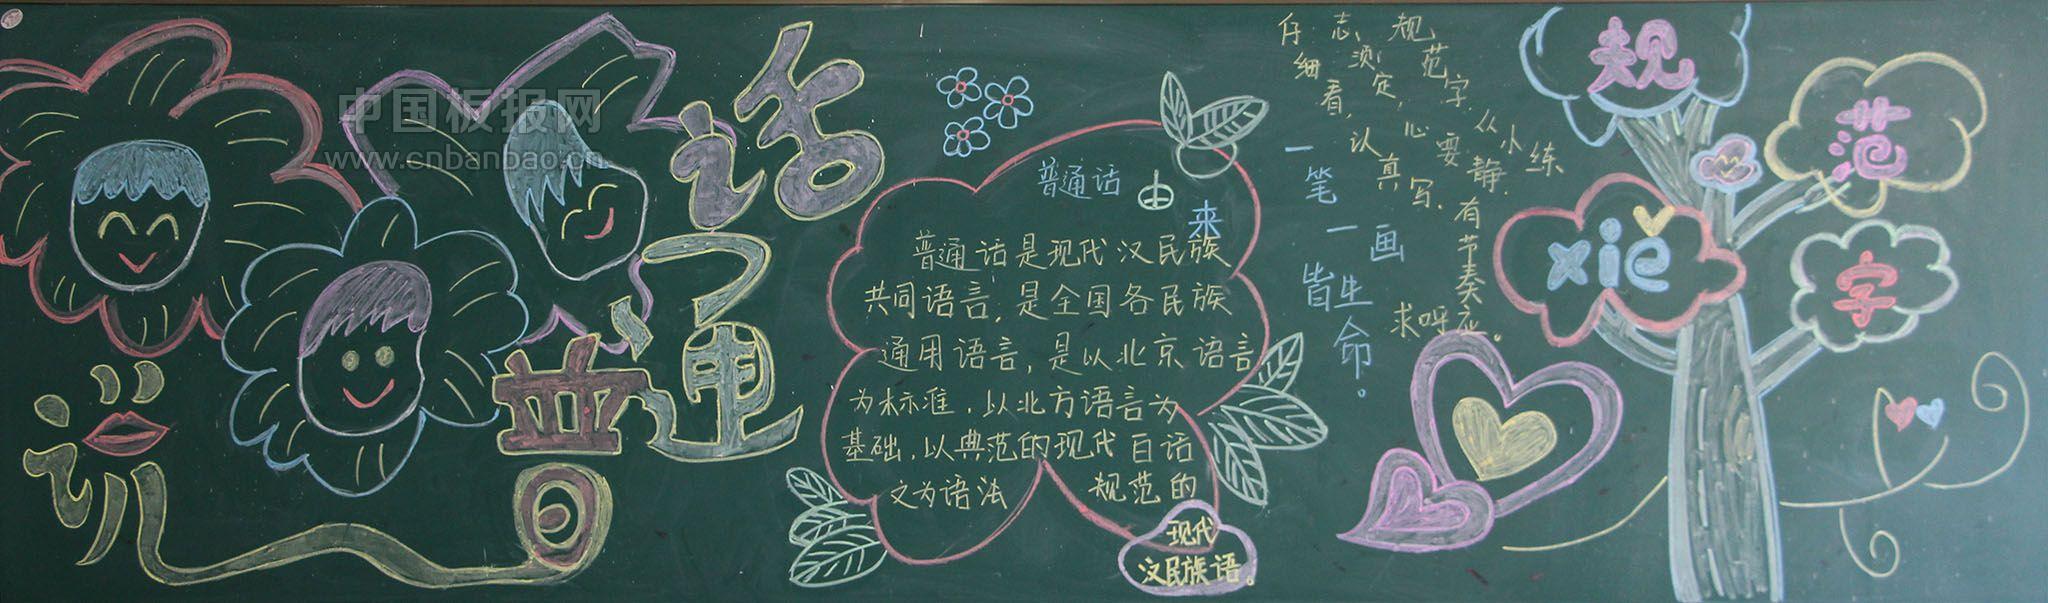 说普通话
中国板报网
www.cnbanbao.cn
普通话由来
普通话是现代汉民族
共同语言，是全国各民族
通用语言，是以北京语言
为标准，以北方语言为
基础，以典范的现代白话
文为语法 规范的
现代
汉民族语。
规范字，从小练
志须定，心要静，
仔细看，认真写．
有节奏求呼应。
一笔一画皆生命。
xiě
规
范
字